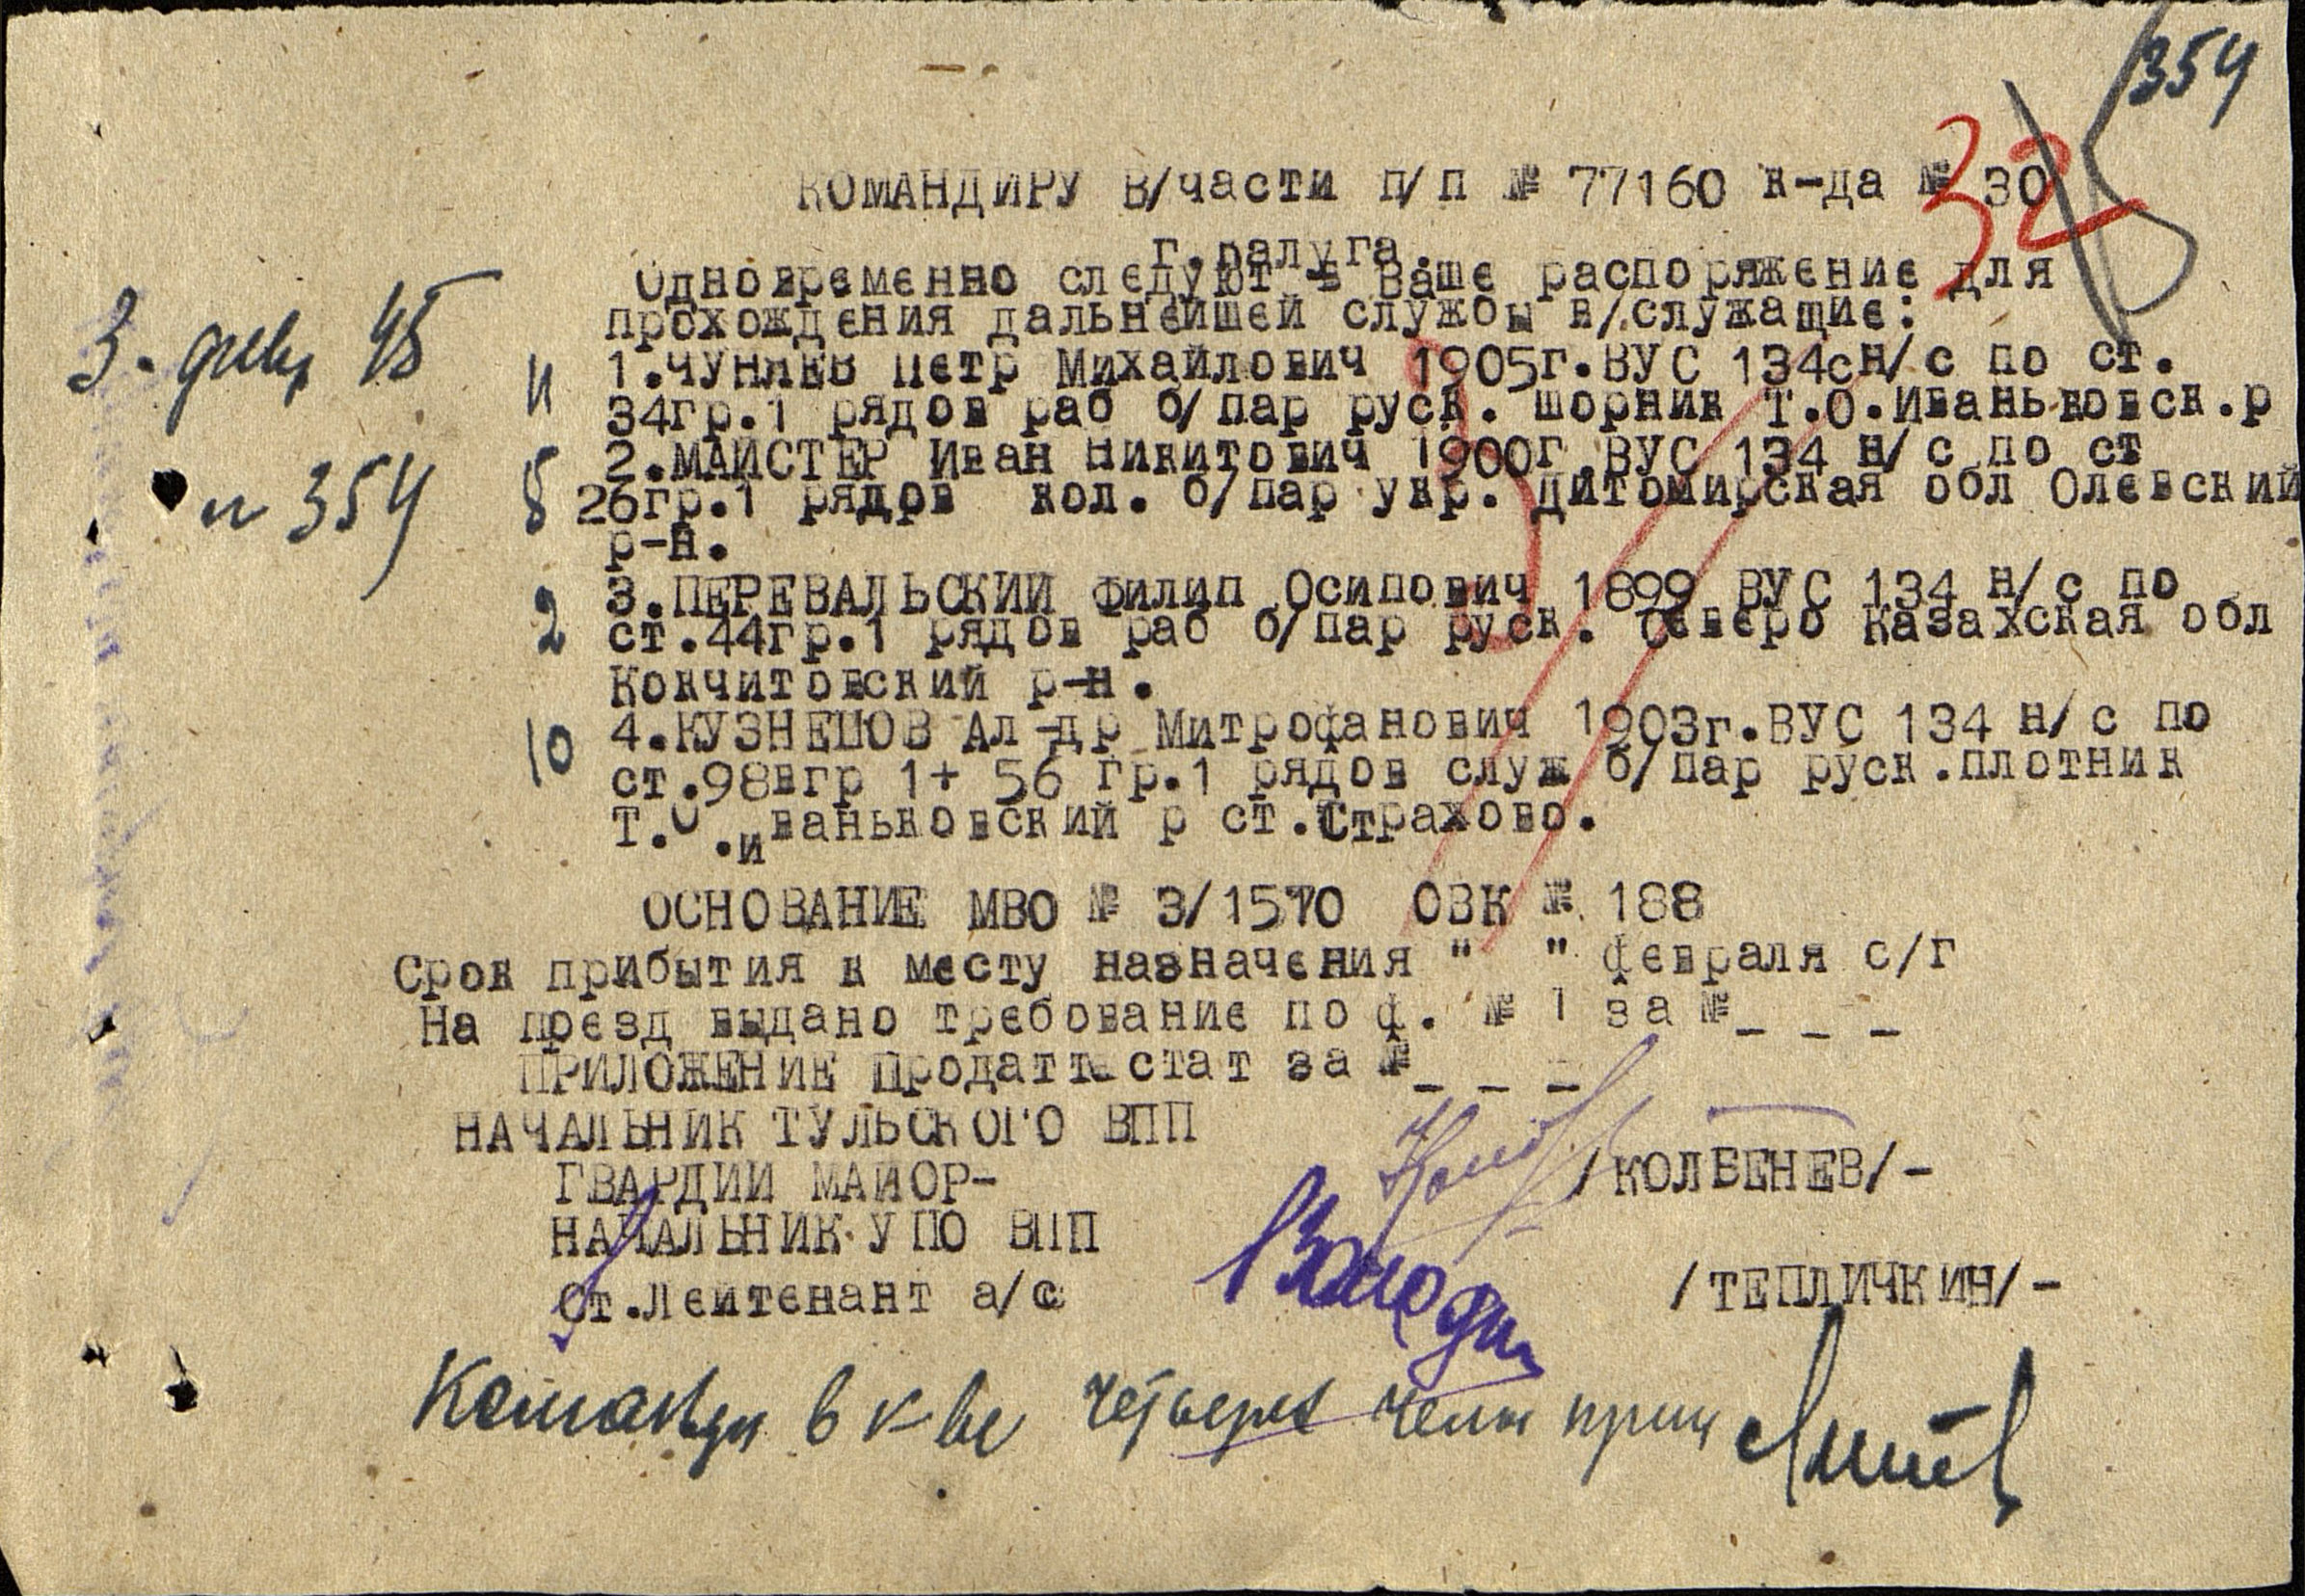 354
КОМАНДИРУ В/части п/п № 77160 к-да № 30
32
г.Калуга.
Одновременно следуют в Ваше распоряжение для
прохождения дальнейшей службы в/служащие:
3. февр 45
1.ЧУНЯЕВ Петр Михайлович 1905г.ВУС 134с н/с по ст.
34гр.1 рядов раб б/пар руск. шорник Т.О.Иваньковск.р
2.МАЙСТЕР Иван Никитович 1900г.ВУС 134 н/с по ст
26гр.1 рядов кол. б/пар укр. Житомирская обл Олевский
р-н.
354
8
3.ПЕРЕВАЛЬСКИЙ Филип Осипович 1899 ВУС 134 н/с по
ст.44гр.1 рядов раб б/пар руск. Северо Казахская обл
Кокчитовский р-н.
2
4.КУЗНЕЦОВ Ал-др Митрофанович 1903г.ВУС 134 н/с по
ст.98вгр 1+ 56 гр.1 рядов служ б/пар руск.плотник
Т.О.Иваньковский р ст.Страхово.
10
ОСНОВАНИЕ МВО № 3/1570 ОВК № 188
Срок прибытия к месту назначения " " февраля с/г
На проезд выдано требование по ф. № 1 за №_ _ _
ПРИЛОЖЕНИЕ Продаттестат за №_ _ _
НАЧАЛЬНИК ТУЛЬСКОГО ВПП
ГВАРДИИ МАЙОР- /КОЛБЕНЕВ/-
НАЧАЛЬНИК УПО ВПП
Ст.Лейтенант а/с /ТЕПЛИЧКИН/-
Команду в к-ве четырех чел